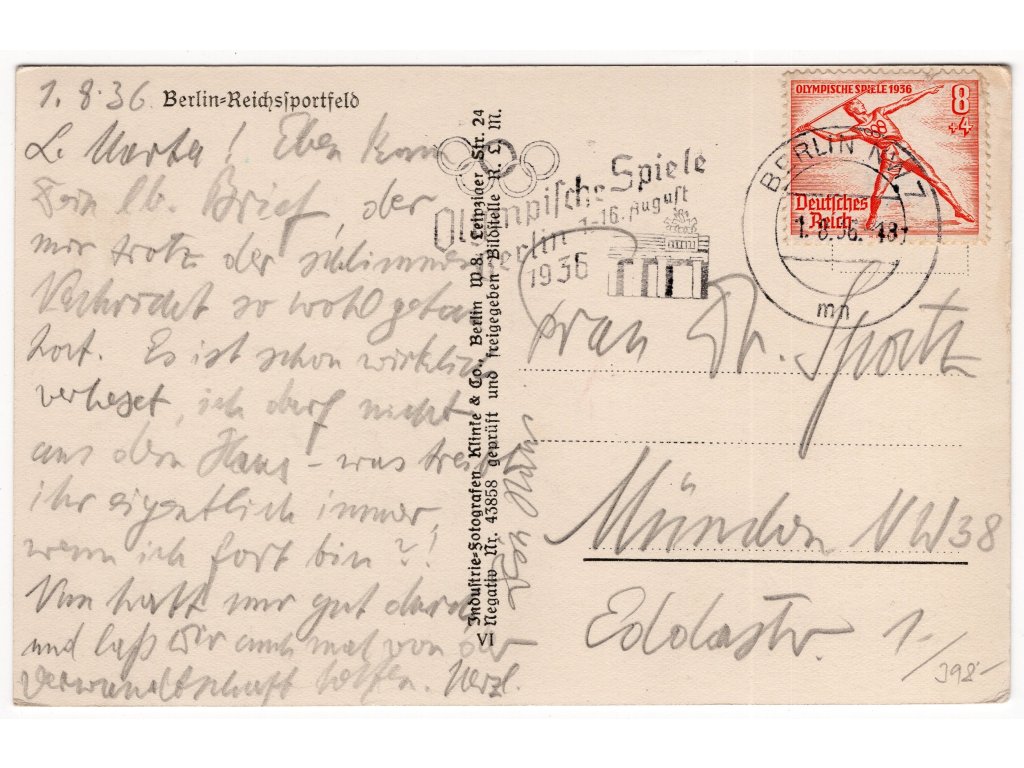 1.8.36
Berlin=Reichssportfeld
L. Marta! Eben kam
Dein lb. Brief der
mir trotz der schlimmen
Nachricht so wohl getan
hat. Es ist schon wirklich
verhext, ich darf nicht
aus dem Haus – was treibt
ihr eigentlich immer,
wenn ich fort bin?!
Nun halt mir gut durch
und laß Dir auch mal von der
Verwandtschaft helfen. Herzl.
Industrie=Fotografen Klinke & Co., Berlin W 8, Leipziger Str. 24
Negativ Nr. 43858 geprüft und freigegeben Bildstelle R. L. M.
VI
Olympische Spiele
Berlin 1.-16. August
1936
OLYMPISCHE SPIELE 1936
8
+4
Deutsches
Reich
BERLIN NW 7
1.8.36.
mn
Frau Dr. Spatz
München NW38
Eddastr. 1.
398.-